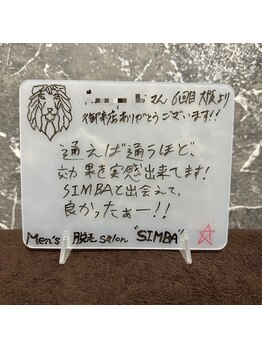 さん 6回目 大阪より
御来店ありがとうございます!!
通えば通うほど、
効果を実感出来てます!
SIMBAと出会えて、
良かったぁー!!
Men's 脱毛 salon "SIMBA"